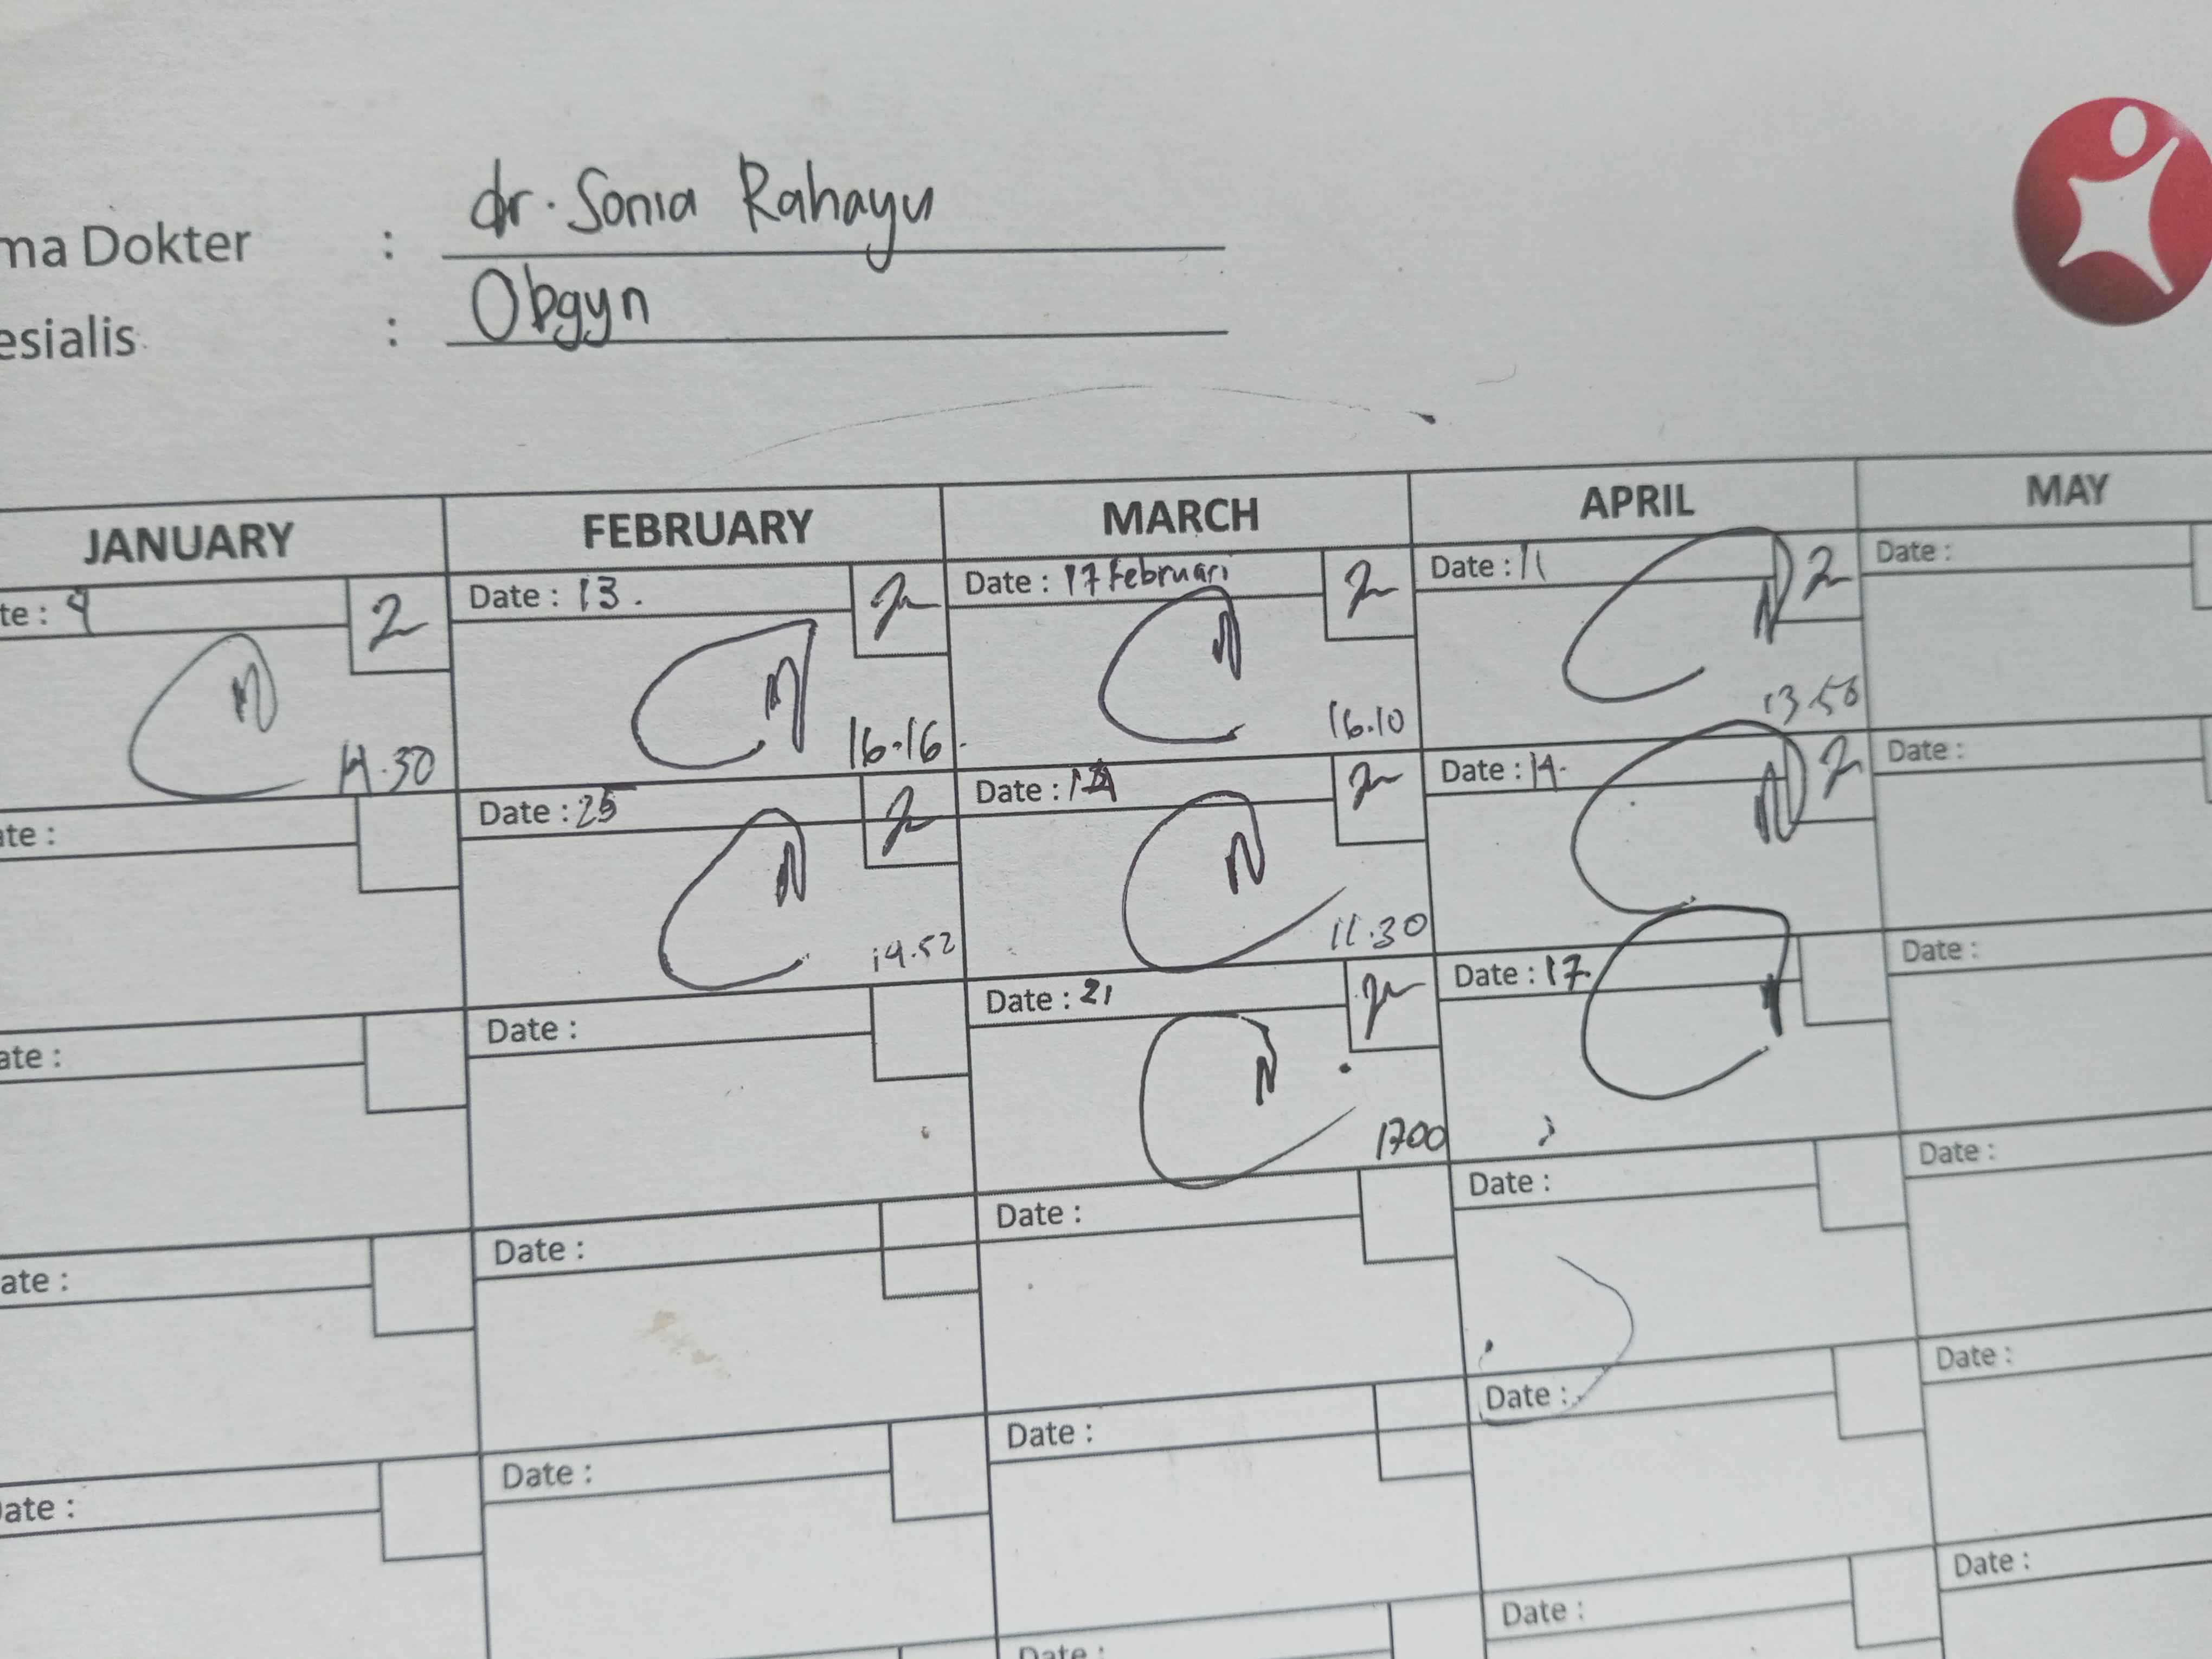 dr. Sonia Rahayu
ma Dokter :
Obgyn
esialis :
JANUARY FEBRUARY MARCH APRIL MAY
te : 9 2 Date : 13. 2 Date : 17 Februari 2 Date : 11 2 Date :
14.30 16.16 16.10 13.50
ate : Date : 25 2 Date : 2 Date : 14. 2 Date :
19.52 11.30
ate : Date : Date : 21 2 Date : 17 Date :
1700
ate : Date : Date : Date : Date :
Date : Date : Date : Date : Date :
Date : Date : Date :